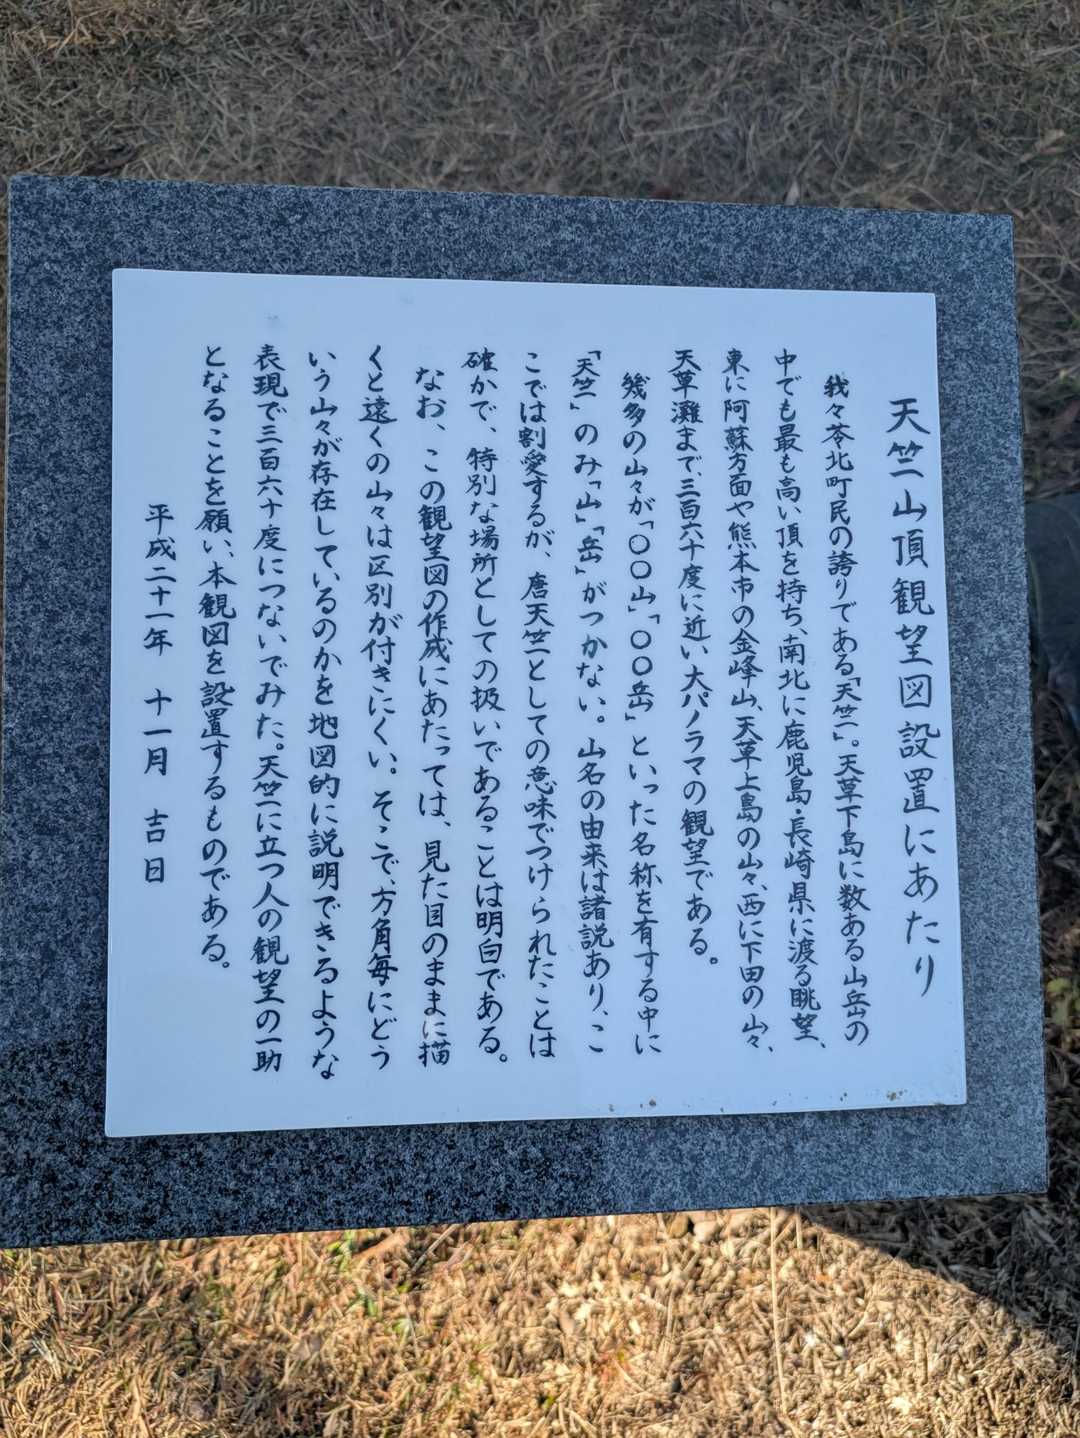 天竺山頂観望図設置にあたり
我々苓北町民の誇りである「天竺」。天草下島に数ある山岳の
中でも最も高い頂を持ち、南北に鹿児島・長崎県に渡る眺望、
東に阿蘇方面や熊本市の金峰山、天草上島の山々、西に下田の山々、
天草灘まで、三百六十度に近い大パノラマの観望である。
幾多の山々が「〇〇山」「〇〇岳」といった名称を有する中に
「天竺」のみ「山」「岳」がつかない。山名の由来は諸説あり、こ
こでは割愛するが、唐天竺としての意味でつけられたことは
確かで、特別な場所としての扱いであることは明白である。
なお、この観望図の作成にあたっては、見た目のままに描
くと遠くの山々は区別が付きにくい。そこで、方角毎にどう
いう山々が存在しているのかを地図的に説明できるような
表現で三百六十度につないでみた。天竺に立つ人の観望の一助
となることを願い、本観図を設置するものである。
平成二十一年 十一月 吉日